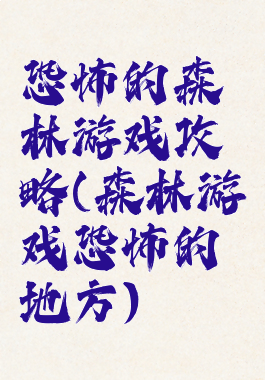 恐怖的森
林游戏攻
略(森林游
戏恐怖的
地方)